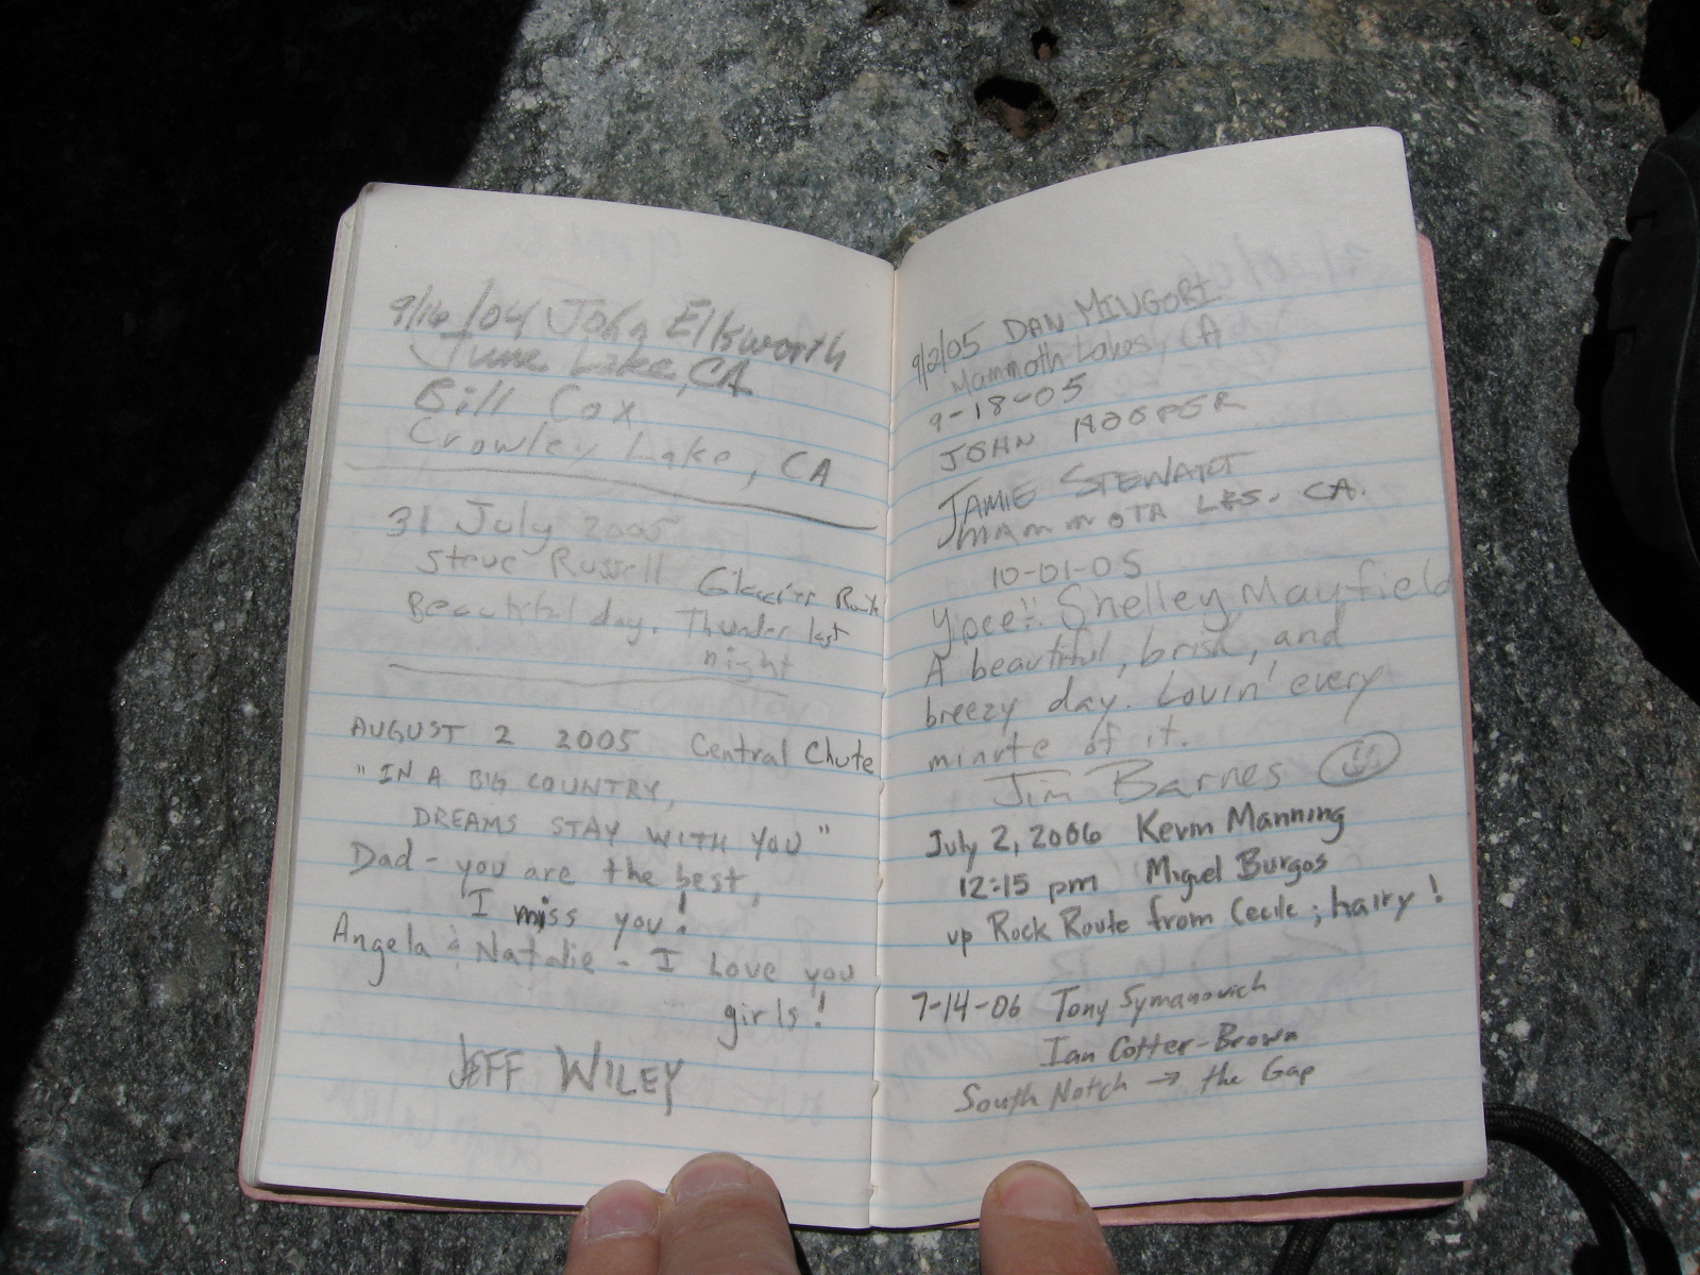 9/16/04 John Elksworth
June Lake, CA
Bill Cox
Crowley Lake, CA
31 July 2005
Steve Russell Glacier Route
Beautiful day. Thunder last
night
AUGUST 2 2005 Central Chute
"IN A BIG COUNTRY,
DREAMS STAY WITH YOU"
Dad - you are the best,
I miss you!
Angela & Natalie - I love you
girls!
JEFF WILEY
9/2/05 DAN MINGORI
Mammoth Lakes, CA
9-18-05
JOHN HOOPER
JAMIE STEWART
MAMMOTH LKS. CA.
10-01-05
Ypee!! Shelley Mayfield
A beautiful, brisk, and
breezy day. Lovin' every
minute of it.
Jim Barnes
July 2, 2006 Kevin Manning
12:15 pm Miguel Burgos
up Rock Route from Cecile; hairy!
7-14-06 Tony Symanovich
Ian Cotter-Brown
South Notch → the Gap